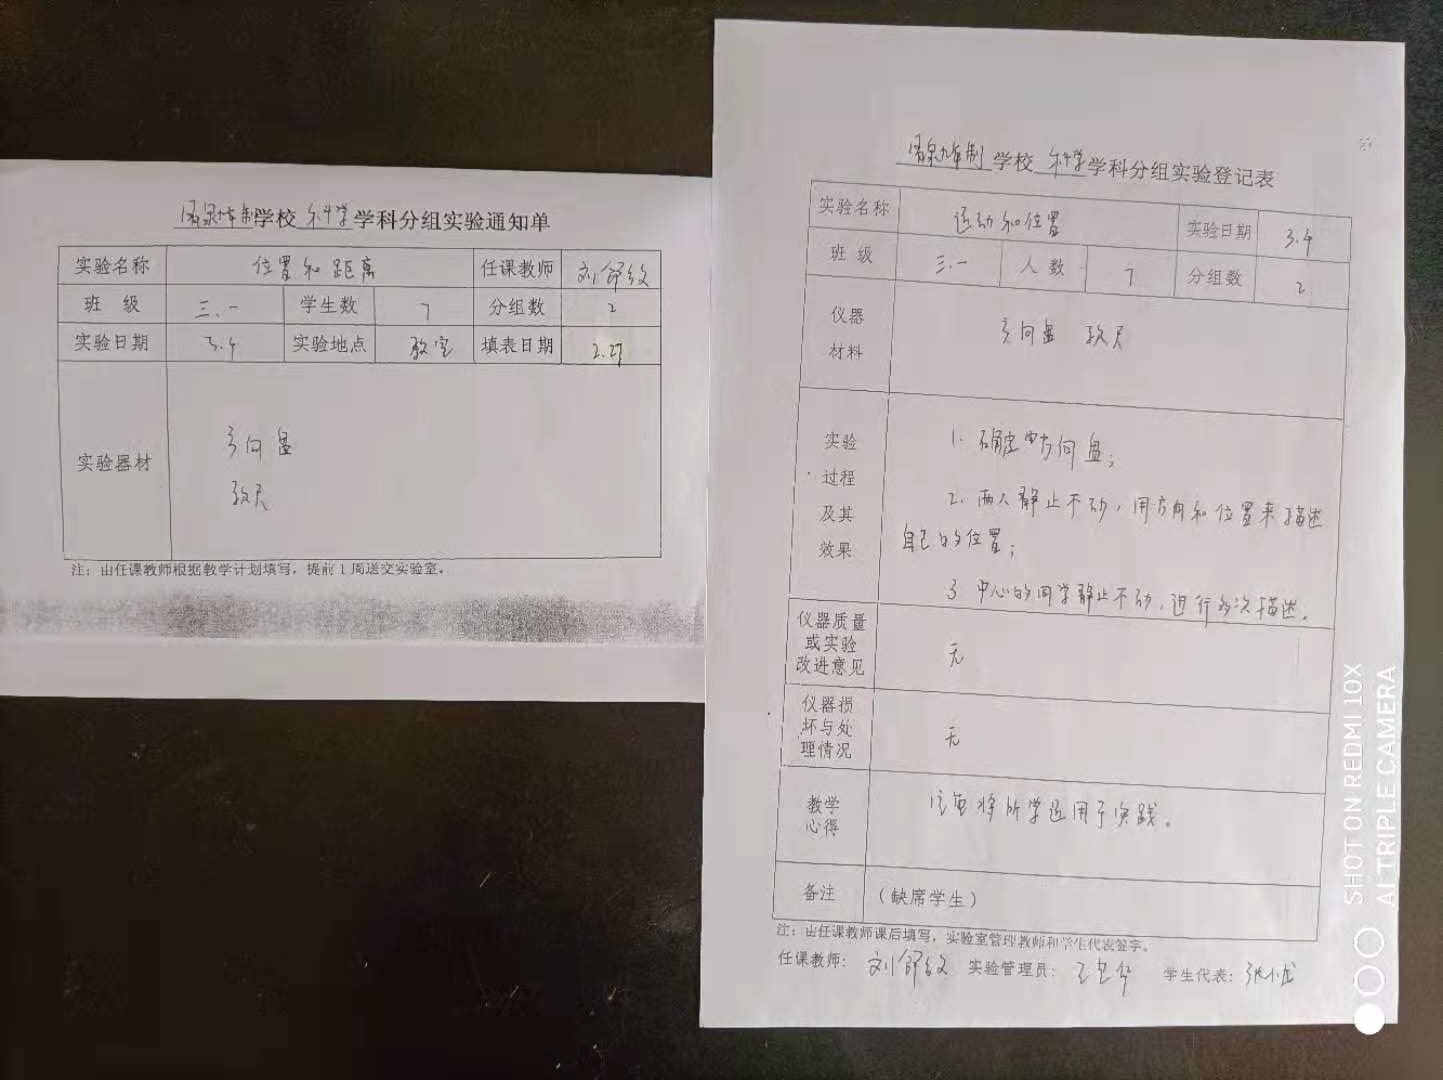 学校 科学 学科分组实验通知单
实验名称 位置和距离 任课教师
班 级 三.一 学生数 7 分组数 2
实验日期 3.4 实验地点 教室 填表日期 2.27
实验器材
方向盘
软尺
注：由任课教师根据教学计划填写，提前1周送交实验室。
九年制 学校 科学 学科分组实验登记表
实验名称 运动和位置 实验日期 3.4
班 级 三.一 人数 7 分组数 2
仪器材料 方向盘 软尺
实验过程及其效果
1. 确定 方向盘；
2. 两人静止不动，用方向和位置来描述
自己的位置；
3 中心的同学静止不动，进行多次描述。
仪器质量或实验改进意见 无
仪器损坏与处理情况 无
教学心得 注重将所学运用于实践。
备注 （缺席学生）
注：由任课教师课后填写，实验室管理教师和学生代表签字。
任课教师： 实验管理员： 学生代表：
SHOT ON REDMI 10X
AI TRIPLE CAMERA